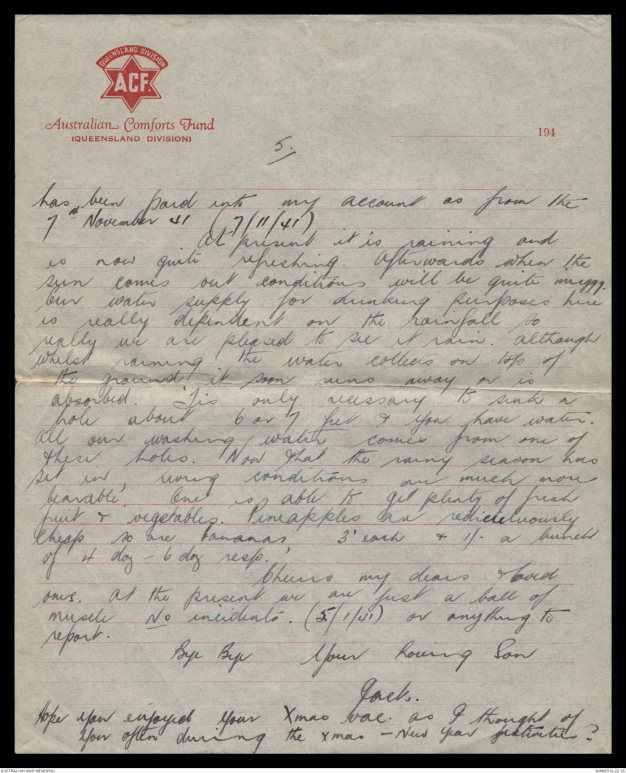 QUEENSLAND DIVISION
ACF.
Australian Comforts Fund
(QUEENSLAND DIVISION)
194
5.
has been paid into my account as from the
7th November 41 (7/11/41)
At present it is raining and
is now quite refreshing. Afterwards when the
sun comes out conditions will be quite muggy.
Our water supply for drinking purposes here
is really dependent on the rainfall so
really we are pleased to see it rain. Although
whilst raining the water collects on top of
the ground, it soon runs away or is
absorbed. 'Tis only necessary to sink a
hole about 6 or 7 feet & you have water.
All our washing water comes from one of
these holes. Now that the rainy season has
set in living conditions are much more
bearable. One is able to get plenty of fresh
fruit & vegetables. Pineapples are rediculously
cheap so are bananas 3d each & 1/- a bunch
of 4 doz - 6 doz resp.
Cheerio my dears & loved
ones. At the present we are just a ball of
muscle No incidents. (5/1/41) or anything to
report.
Bye Bye Your loving Son
Jack.
Hope you enjoyed your Xmas vac. as I thought of
you often during the Xmas - New Year festivities?
AUSTRALIAN WAR MEMORIAL